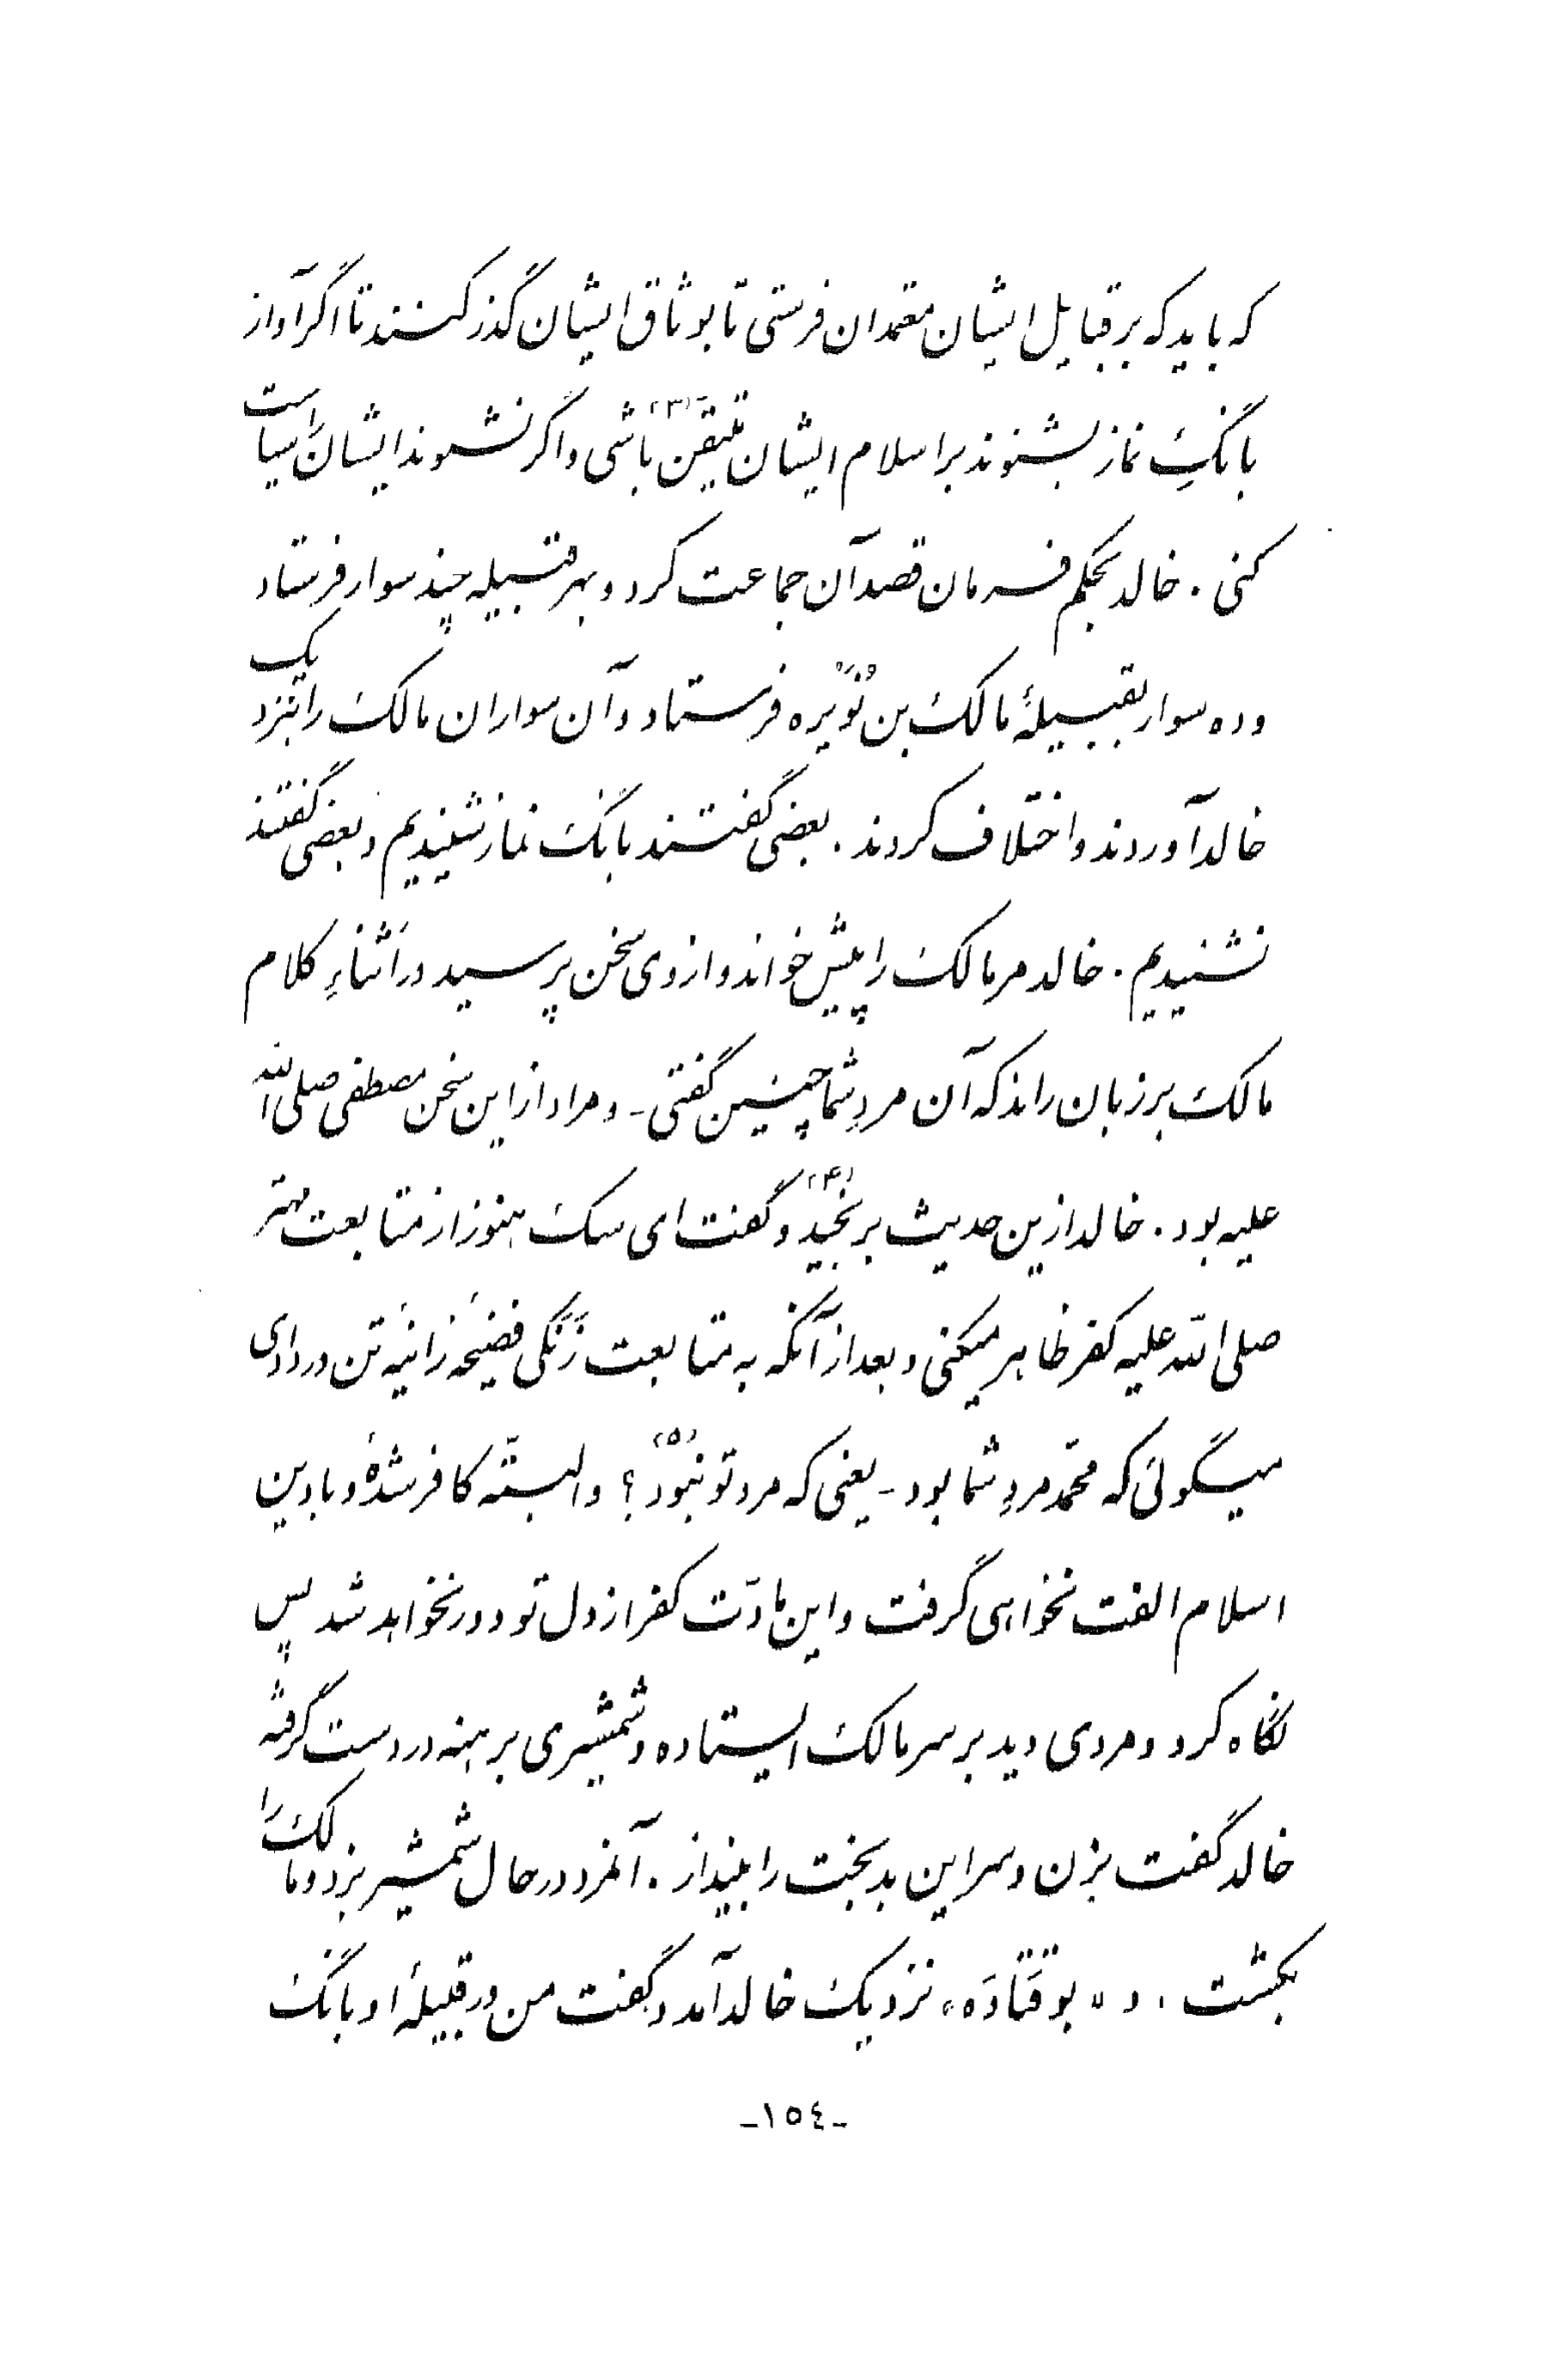 که باید که بر قبایل ایشان معتمدان فرستی تا بوثاق ایشان گذر کنند تا اگر آواز
بانگِ نماز بشنوند بر اسلام ایشان متیقن(۳) باشی و اگر نشنوند ایشان را سیاست
کنی . خالد بحکم فرمان قصد آن جماعت کرد و بهر قبیله چند سوار فرستاد
و ده سوار بقبیلهٔ مالک بن نُوَیْره فرستاد و آن سواران مالک را بنزدیک
خالد آوردند و اختلاف کردند . بعضی گفتند بانگ نماز شنیدیم و بعضی گفتند
نشنیدیم . خالد مر مالک را پیش خواند و از وی سخن پرسید در اَثناءِ کلام
مالک بر زبان راند که آن مردِ شما چنین گفتی - و مراد از این سخن مصطفی صلی الله
علیه بود . خالد ازین حدیث برنجید(۴) و گفت ای سگ هنوز از متابعت مهتر
صلی الله علیه کفر ظاهر میکنی و بعد از آنکه به متابعت زَنَکی فضیحهٔ زانیه تن در دادی
میگوئی که محمّد مردِ شما بود - یعنی که مرد تو نَبُوْد(۵)؟ و البتّه کافر شدهٔ و با دین
اسلام الفت نخواهی گرفت و این مادّت کفر از دل تو دور نخواهد شد پس
نگاه کرد و مردی دید بر سر مالک ایستاده و شمشیری برهنه در دست گرفته
خالد گفت بزن و سر این بدبخت را بینداز . آنمرد در حال شمشیر بزد و مالک را
بکشت . و « بو قَتادَه » نزدیک خالد آمد و گفت من در قبیلهٔ او بانگ
-١٥٤-